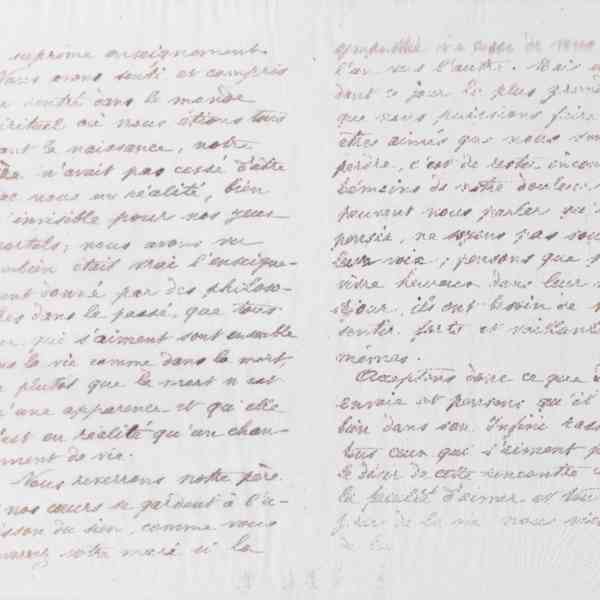 suprême enseignement.
Nous avons senti et compris
rentré dans le monde
spirituel où nous étions tous
avant la naissance, notre
n'avait pas cessé d'être
avec nous en réalité, bien
invisible pour nos yeux
mortels; nous avons vu
combien était vrai l'enseigne-
ment donné par des philoso-
phes dans le passé, que tous
qui s'aiment sont ensemble
dans la vie comme dans la mort,
plutôt que la mort n'est
qu'une apparence et qu'elle
n'est en réalité qu'un chan-
gement de vie.
Nous reverrons notre père
nos cœurs se gardent à l'u-
nisson du sien, comme vous
votre mari si la
l'un vers l'autre. Mais
dans ce jour la plus grande
que nous puissions faire
êtres aimés que nous
perdre, c'est de rester
témoins de notre douleur
peuvent nous parler
pensée, ne soyons pas
leur vie; pensons que
vivre heureux dans leur
séjour, ils ont besoin de
sentir forts et vaillants
mêmes.
Acceptons donc ce que
envoie et pensons qu'il
bien dans son Infini
tous ceux qui s'aiment
le désir de cette rencontre
la faculté d'aimer et
de la vie nous
de